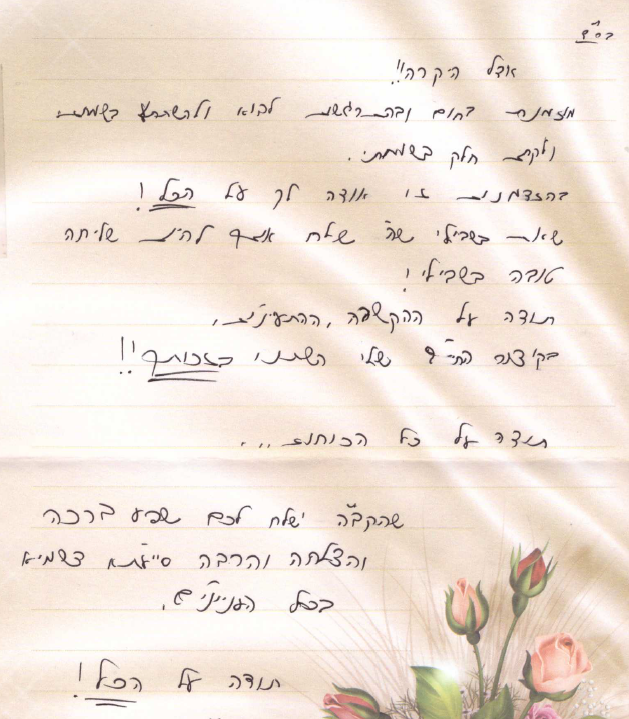 בס"ד
אצל היקרה!!
מוזמנת בחום ובהתרגשות לבוא ולהשתתף בשמחתי
ולקחת חלק בשמחתי.
בהזדמנות זו אודה לך על הכל!
שאת בשבילי שה' שלח אותך להיות שליחה
טובה בשבילי!
תודה על ההקשבה, ההתעניינות,
בקיצור החיים שלי השתנו בזכותך!!
תודה על כל הכוחות...
שהקב"ה ישלח לכם שפע ברכה
והצלחה והרבה סייעתא דשמיא
בכל העניינים.
תודה על הכל!